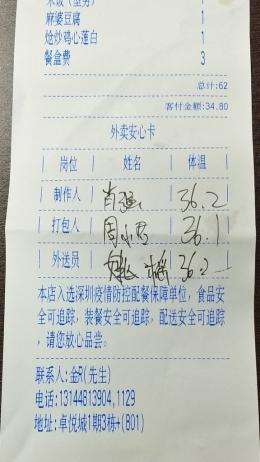 米饭(堂劳) 1
麻婆豆腐 1
炝炒鸡心莲白 1
餐盒费 3
总计:62
客付金额:34.80
外卖安心卡
岗位 姓名 体温
制作人 肖强 36.2
打包人 周 36.1
外送员 36.2
本店入选深圳疫情防控配餐保障单位,食品安
全可追踪,装餐安全可追踪,配送安全可追踪
,请您放心品尝。
联系人:金R(先生)
电话:13144813904,1129
地址:卓悦城1期3栋+(801)